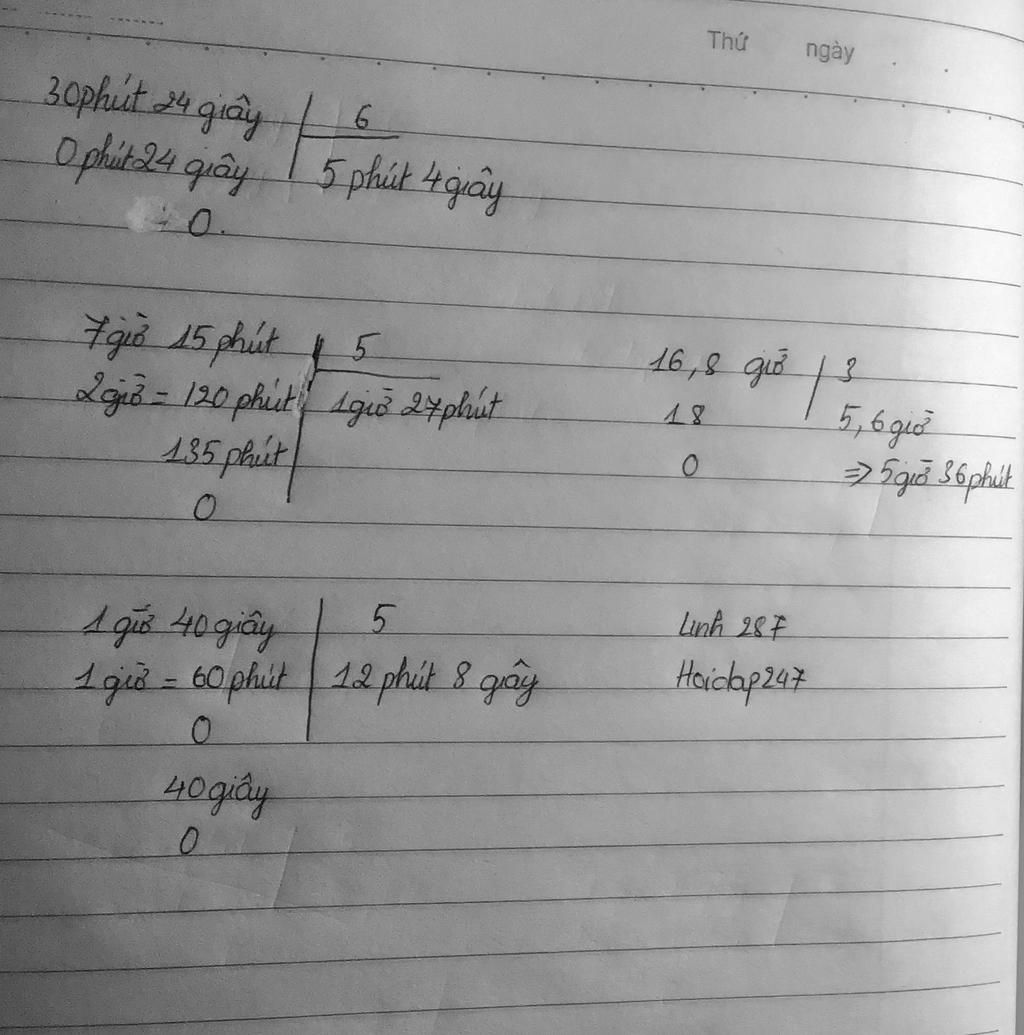 Thứ ngày
30phút 24 giây 6
0phút 24 giây 5 phút 4 giây
0.
7 giờ 15 phút 5
2 giờ = 120 phút 1 giờ 27 phút
135 phút
0
16,8 giờ 3
18 5,6 giờ
0 => 5 giờ 36 phút
1 giờ 40 giây 5
1 giờ = 60 phút 12 phút 8 giây
0
40 giây
0
Linh 287
Hoidap247